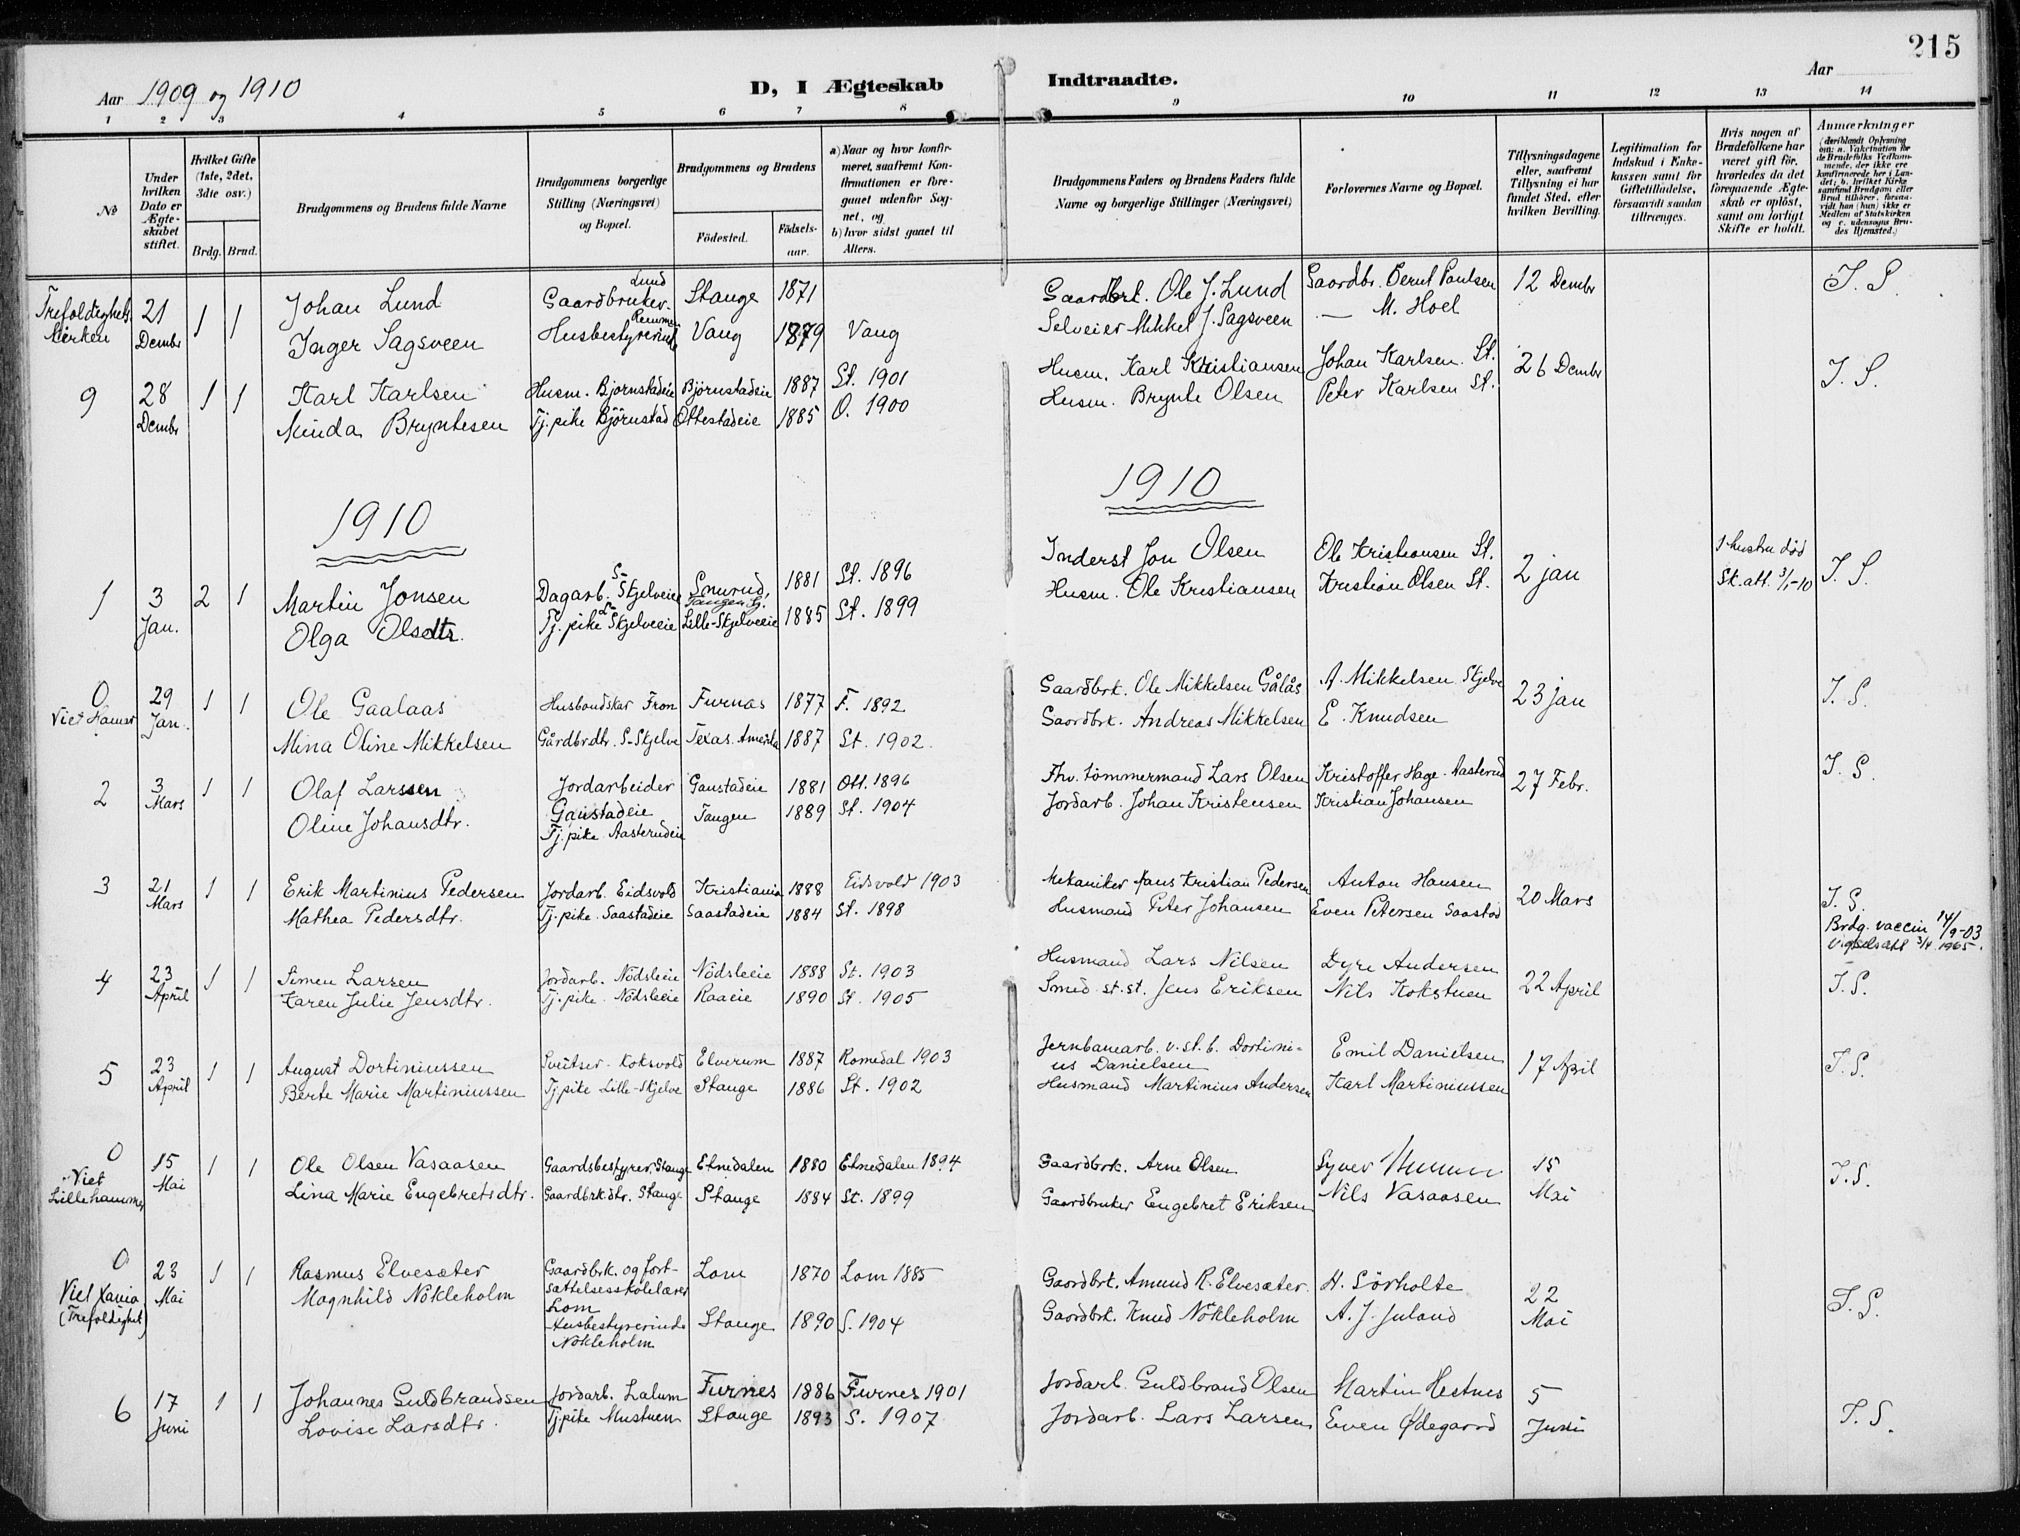 215
Aar 1909 og 1910
D, I Ægteskab Indtraadte.
Aar
1 2 3 4 5 6 7 8 9 10 11 12 13 14
No
Under hvilken Dato er Ægteskabet stiftet.
Hvilket Gifte (1ste, 2det, 3die osv.)
Brdg. Brud.
Brudgommens og Brudens fulde Navne
Brudgommens borgerlige Stilling (Næringsvei) og Bopæl.
Brudgommens og Brudens
Födested. Födselsaar.
a) Naar og hvor konfirmeret, saafremt Konfirmationen er foregaaet udenfor Sognet, og
b) hvor sidst gaaet til Alters.
Brudgommens Faders og Brudens Faders fulde Navne og borgerlige Stillinger (Næringsvei)
Forlovernes Navne og Bopæl.
Tillysningsdagene eller, saafremt Tillysning ei har fundet Sted, efter hvilken Bevilling.
Legitimation for Indskud i Enkekassen samt for Giftetilladelse, forsaavidt saadan tiltrænges.
Hvis nogen af Brudefolkene har været gift før, hvorledes da det foregaaende Ægteskab er oplöst, samt om lovligt Skifte er holdt.
Anmærkninger
(deriblandt Oplysning om: a. Vakcination for de Brudefolks Vedkommende, der ikke ere konfirmerede her i Landet; b. hvilket Kirkesamfund Brudgom eller Brud tilhörer, forsaavidt han (hun) ikke er Medlem af Statskirken og c. udensogns Brudes Hjemsted.)
Trefoldigheds Kirken 21 Dembr 1 1 Johan Lund Gaardbruker Lund Stange 1871 Gaardbrk. Ole J. Lund Gaardbr. Bernt Paulsen 12 Dembr I. S.
Inger Sagsveen Husbestyrerinde Vang 1879 Vang Selveier Mikkel J. Sagsveen — M. Hoel
9 28 Dembr 1 1 Karl Karlsen Husm. Bjørnstadeie Björnstadeie 1887 St. 1901 Husm. Karl Kristiansen Johan Karlsen St. 26 Dembr I. S.
Minda Bryntesen Tj. pike Björnstad Ottestadeie 1885 O. 1900 Husm. Brynte Olsen Peter Karlsen St.
1910 1910
1 3 Jan. 2 1 Martin Jonsen Dagarb. S-Skjelveeie Smurud, Tangen Sg. 1881 St. 1896 Inderst Jon Olsen Ole Kristiansen St. 2 jan 1 hustru död Sk.att. 3/1-10 I. S.
Olga Olsdtr. Tj. pike L- Skjelveeie Lille-Skjelveeie 1885 St. 1899 Husm. Ole Kristiansen Kristian Olsen St.
0 Viet Hamar 29 Jan. 1 1 Ole Gaalaas Husbondskar Fron Furnas 1877 F. 1892 Gaardbrk. Ole Mikkelsen Gålås A. Mikkelsen Skjelve 23 jan I. S.
Mina Oline Mikkelsen Gårdbrdtr. S-Skjelve Texas. Amerika 1887 St. 1902. Gaardbrk. Andreas Mikkelsen E. Knudsen
2 3 Mars 1 1 Olaf Larssen Jordarbeider Gaustadeie Gaustadeie 1881 Ott. 1896 Fhv. tömmermand Lars Olsen Kristoffer Hage. Aasterud 27 Febr. I. S.
Oline Johansdtr. Tj. pike Aasterudeie Tangen 1889 St. 1904 Jordarb. Johan Kristensen Kristian Johansen
3 21 Mars 1 1 Erik Martinius Pedersen Jordarb. Eidsvold Kristiania 1888 Eidsvold 1903 Mekaniker Hans Kristian Pedersen Anton Hansen 20 Mars I. S.
Mathea Pedersdtr. Tj. pike. Saastadeie Saastadeie 1884 St. 1898 Husmand Peter Johansen Even Petersen Saastad Brdg. vaccin 14/9-03 Vigselsatt 3/4 1965.
4 23 April 1 1 Simen Larsen Jordarb. Nödsleeie Nödsleeie 1888 St. 1903 Husmand Lars Nilsen Dyre Andersen 22 April I. S.
Karen Julie Jensdtr. Tj. pike. Nödsleeie Raaeie 1890 St. 1905 Smed st. st. Jens Eriksen Nils Kokstuen
5 23 April 1 1 August Dortiniussen Sveitser. Koksvold Elverum 1887 Romedal 1903 Jernbanearb. v. st. b. Dortinius Danielsen Emil Danielsen 17 April I. S.
Berte Marie Martiniussen Tj. pike Lille-Skjelve Stange 1886 St. 1902 Husmand Martinius Andersen Karl Martiniussen
0 Viet Lillehammer 15 Mai 1 1 Ole Olsen Vasaasen Gaardsbestyrer. Stange Etnedalen 1880 Etnedalen 1894 Gaardbrk. Arne Olsen Syver 15 Mai I. S.
Lina Marie Engebretsdtr. Gaardbrk.dtr. Stange Stange 1884 St. 1899 Gaardbruker Engebret Eriksen Nils Vasaasen
0 Viet Xania (Trefoldighet) 23 Mai 1 1 Rasmus Elvesæter Gaardbrk. og fortsættelsesskolelærer Lom Lom 1870 Lom 1885 Gaardbrk. Amund R. Elvesæter. H. Sörholte 22 Mai I. S.
Magnhild Nökleholm Husbestyrerinde Nökleholm Stange 1890 S. 1904 Gaardbrk. Knud Nökleholm A. J. Juland
6 17 Juni 1 1 Johannes Guldbrandsen Jordarb. Lalum Furnes 1886 Furnes 1901 Jordarb. Guldbrand Olsen Martin Hestnes 5 Juni I. S.
Lovise Larsdtr. Tj. pike Mustuen Stange 1893 S. 1907 Jordarb. Lars Larsen Even Ødegaard